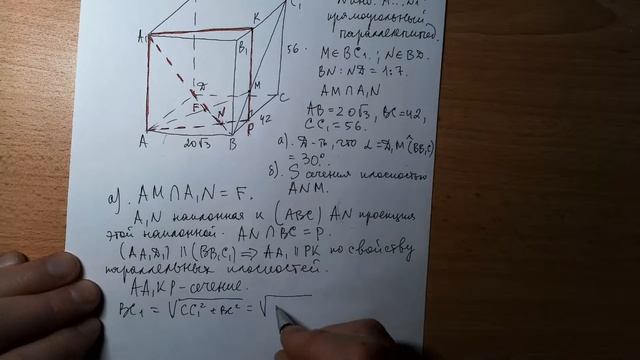 прямоугольный
параллелепипед.
M ∈ BC₁ ; N ∈ BD.
BN : ND = 1:7.
AM ∩ A₁N
AB = 20√3, BC = 42,
CC₁ = 56.
а). Д-ть, что α = D₁M^(BB₁C)
= 30°.
б). S сечения плоскостью
ANM.
A₁
K
C₁
B₁
56
D
M
F
C
N
42
A
20√3
B
P
а). AM ∩ A₁N = F.
A₁N наклонная к (ABC) AN проекция
этой наклонной. AN ∩ BC = P.
(AA₁D₁) || (BB₁C₁) ⇒ AA₁ || PK по свойству
параллельных плоскостей.
AA₁KP – сечение.
BC₁ = √CC₁² + BC² = √